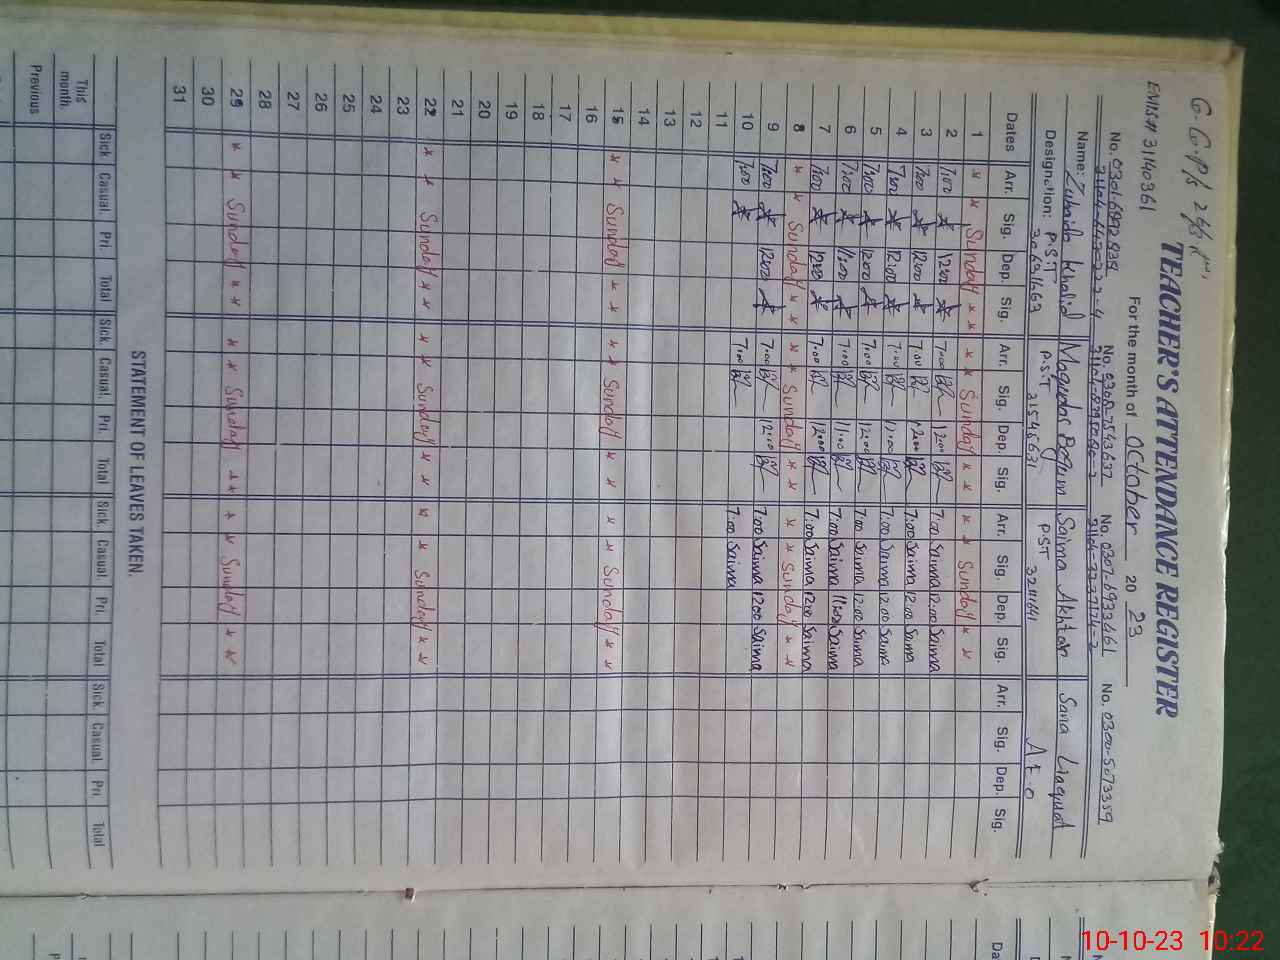 G.G.P/S 24/3 R
EMIS# 31140361
TEACHER'S ATTENDANCE REGISTER
For the month of October 20 23
No. 0301-6992939 No. 0308-7543637 No. 0307-6933461 No. 0300-5073359
Name: Zubaida Khalid Maqudas Begum Saima Akhtar Sana Liaquat
Designation: P.S.T 30691663 P.S.T 31545631 P.S.T 32111641 A E O
Dates Arr. Sig. Dep. Sig. Arr. Sig. Dep. Sig. Arr. Sig. Dep. Sig. Arr. Sig. Dep. Sig.
1 * * Sunday * * * * Sunday * * * * Sunday * *
2 7:00 12:00 7:00 12:00 7:00 Saima 12:00 Saima
3 7:00 12:00 7:00 12:00 7:00 Saima 12:00 Saima
4 7:00 12:00 7:00 12:00 7:00 Saima 12:00 Saima
5 7:00 12:00 7:00 12:00 7:00 Saima 12:00 Saima
6 7:00 11:00 7:00 11:00 7:00 Saima 11:00 Saima
7 7:00 12:00 7:00 12:00 7:00 Saima 12:00 Saima
8 * * Sunday * * * * Sunday * * * * Sunday * *
9 7:00 12:00 7:00 12:00 7:00 Saima 12:00 Saima
10 7:00 7:00 7:00 Saima
11
12
13
14
15 * * Sunday * * * * Sunday * * * * Sunday * *
16
17
18
19
20
21
22 * * Sunday * * * * Sunday * * * * Sunday * *
23
24
25
26
27
28
29 * * Sunday * * * * Sunday * * * * Sunday * *
30
31
STATEMENT OF LEAVES TAKEN.
Sick Casual. Pri. Total Sick. Casual. Pri. Total Sick. Casual. Pri. Total Sick. Casual. Pri. Total
This month.
Previous
10-10-23 10:22